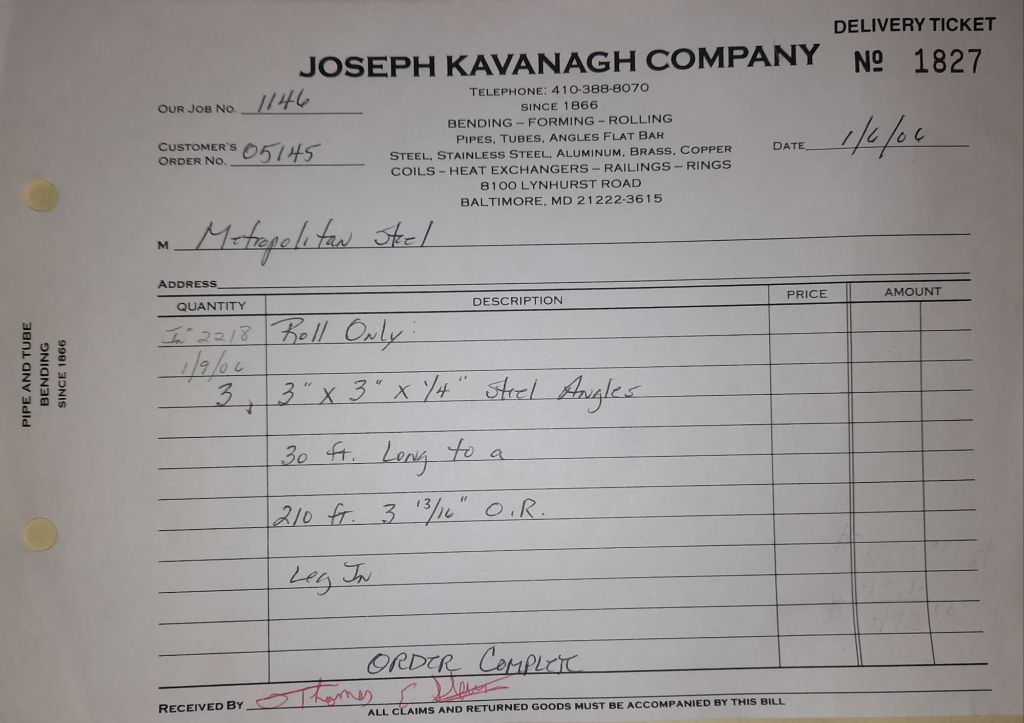 DELIVERY TICKET
JOSEPH KAVANAGH COMPANY
Nº 1827
TELEPHONE: 410-388-8070
SINCE 1866
BENDING – FORMING – ROLLING
PIPES, TUBES, ANGLES FLAT BAR
STEEL, STAINLESS STEEL, ALUMINUM, BRASS, COPPER
COILS – HEAT EXCHANGERS – RAILINGS – RINGS
8100 LYNHURST ROAD
BALTIMORE, MD 21222-3615
OUR JOB NO. 1146
CUSTOMER'S
ORDER NO. 05145
DATE 1/6/06
M Metropolitan Steel
ADDRESS
QUANTITY DESCRIPTION PRICE AMOUNT
2218 Roll Only:
1/9/06
3 3" x 3" x 1/4" Steel Angles
30 ft. Long to a
210 ft. 3 13/16" O.R.
Leg In
ORDER COMPLETE
RECEIVED BY Thomas
ALL CLAIMS AND RETURNED GOODS MUST BE ACCOMPANIED BY THIS BILL
PIPE AND TUBE
BENDING
SINCE 1866